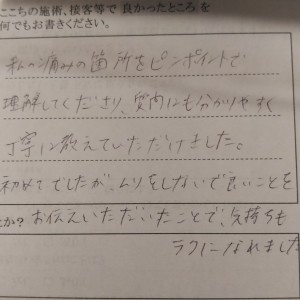 ここちの施術、接客等で 良かったところ を
何でもお書きください。
私の痛みの箇所をピンポイントで
理解してくださり、質問にも分かりやすく
丁寧に教えていただけました。
初めてでしたが、ムリをしないで良いことを
たか? お伝えいただいたことで、気持ちも
ラクになれました